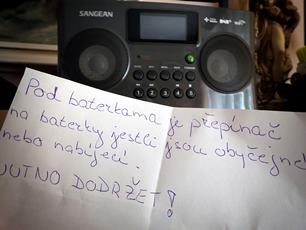 SANGEAN
DAB+
Pod baterkama je přepínač
na baterky jestli jsou obyčejné
nebo nabíjecí.
NUTNO DODRŽET!